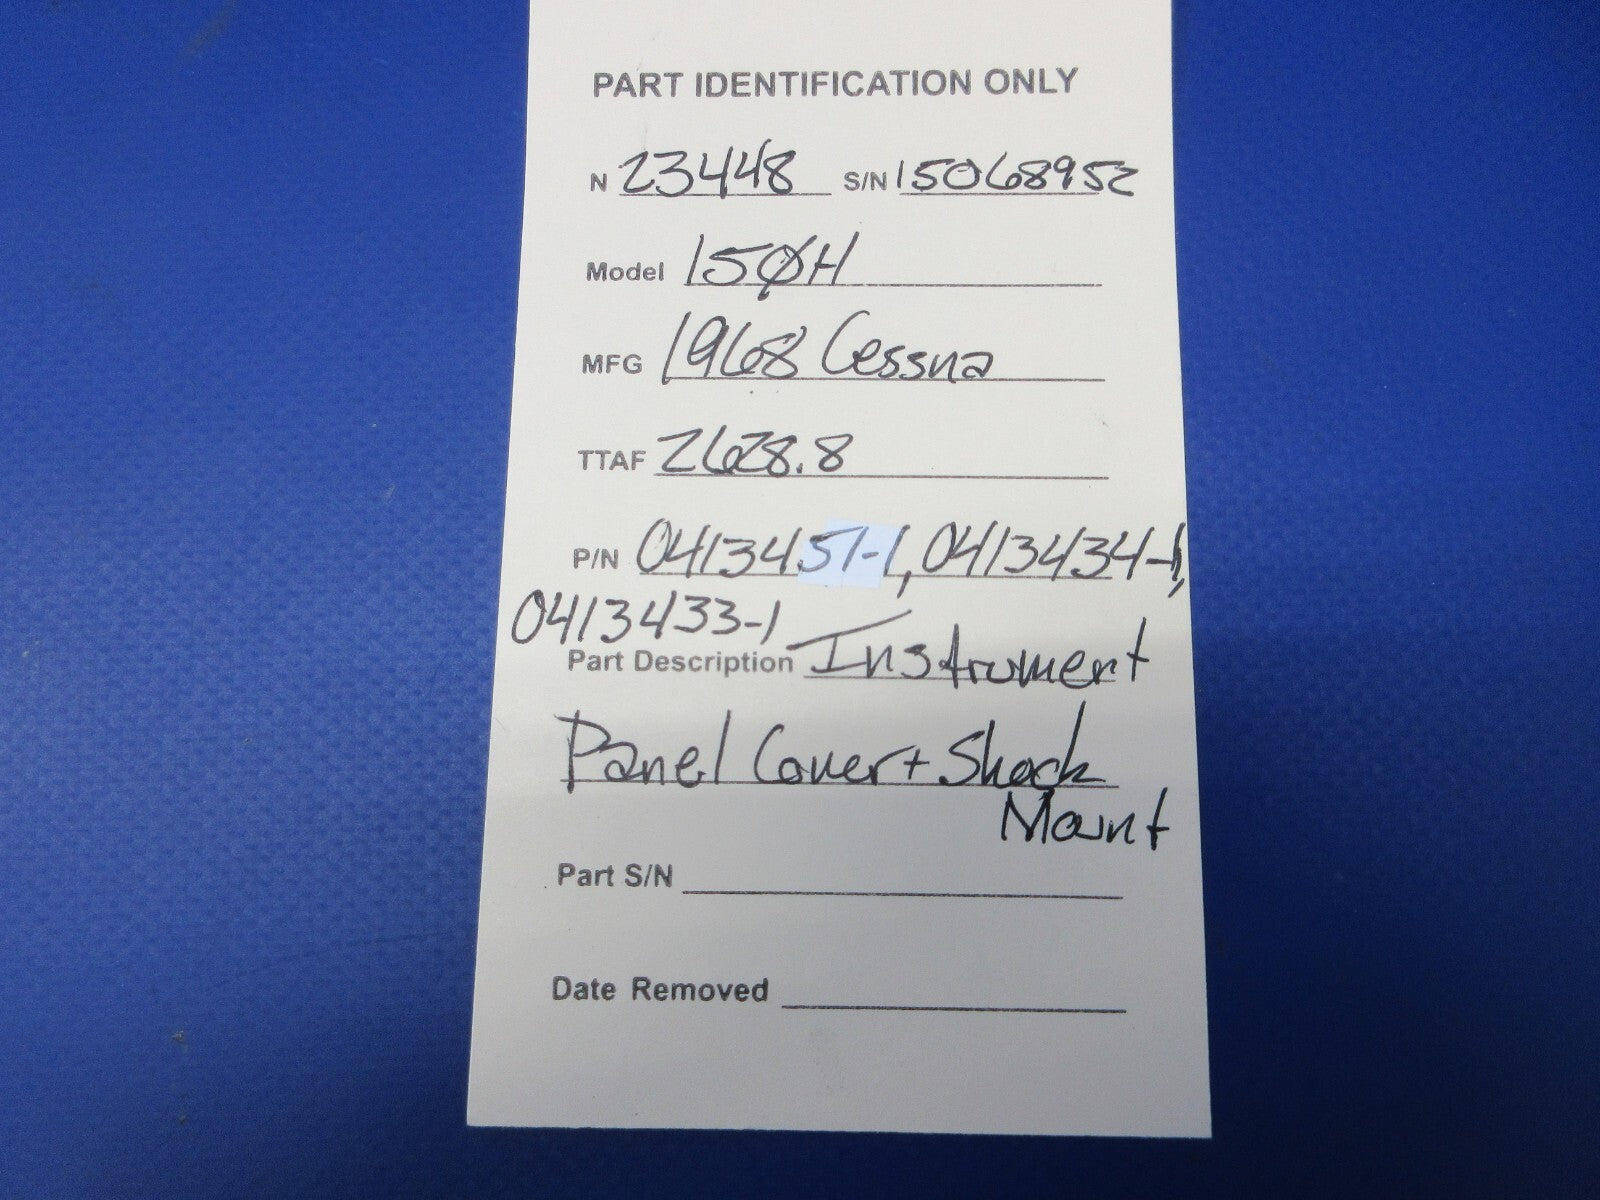 PART IDENTIFICATION ONLY
N 23448 S/N 15068952
Model 150H
MFG 1968 Cessna
TTAF 2628.8
P/N 0413451-1, 0413434-1,
0413433-1
Part Description Instrument
Panel Cover + Shock
Mount
Part S/N
Date Removed